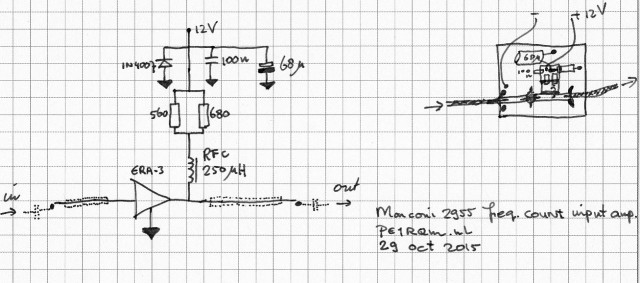 12V
+12V
1N4007
100n
68µ
68µ
560
680
RFC
250µH
ERA-3
in
out
Marconi 2955 freq. count input amp.
PE1RQM.nl
29 oct 2015